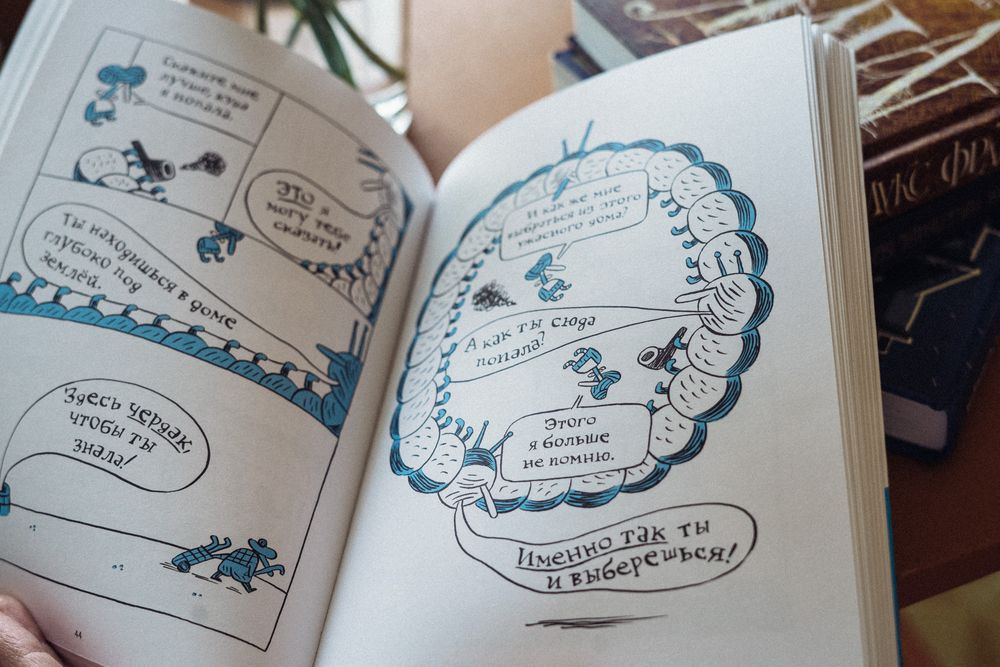 Скажите мне
лучше, куда
я попала.
ЭТО я
могу тебе
сказать!
Ты находишься в доме
глубоко под
землёй.
Здесь чердак,
чтобы ты
знала!
44
И как же мне
выбраться из этого
ужасного дома?
А как ты сюда
попала?
Этого
я больше
не помню.
Именно так ты
и выберешься!
УКС ФР